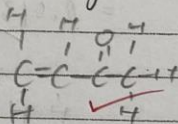 H H O H
C=C-C-C-H
H H